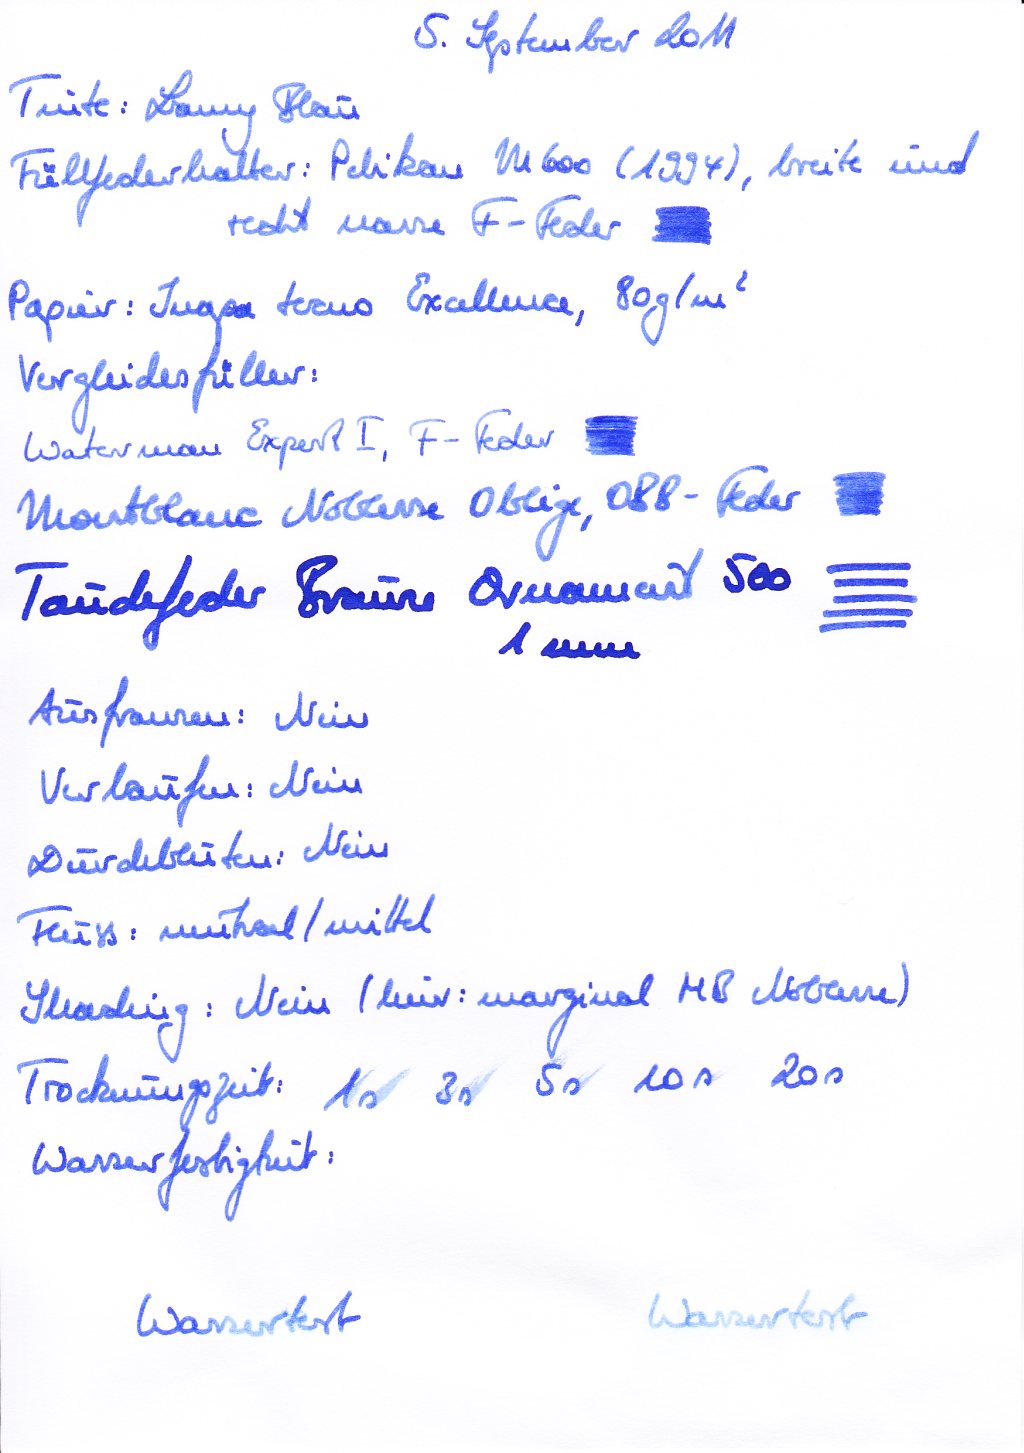 5. September 2011
Tinte: Lamy Blau
Füllfederhalter: Pelikan M600 (1994), breite und
recht nasse F-Feder
Papier: Inapa tecno Excellence, 80g/m²
Vergleichsfüller:
Waterman Expert I, F-Feder
Montblanc Noblesse Oblige, OBB-Feder
Tauchfeder Brause Ornament 500
1 mm
Ausfransen: Nein
Verlaufen: Nein
Durchbluten: Nein
Fluss: neutral/mittel
Shading: Nein (hier: marginal MB Noblesse)
Trocknungszeit: 1s 3s 5s 10s 20s
Wasserfestigkeit:
Wassertest Wassertest